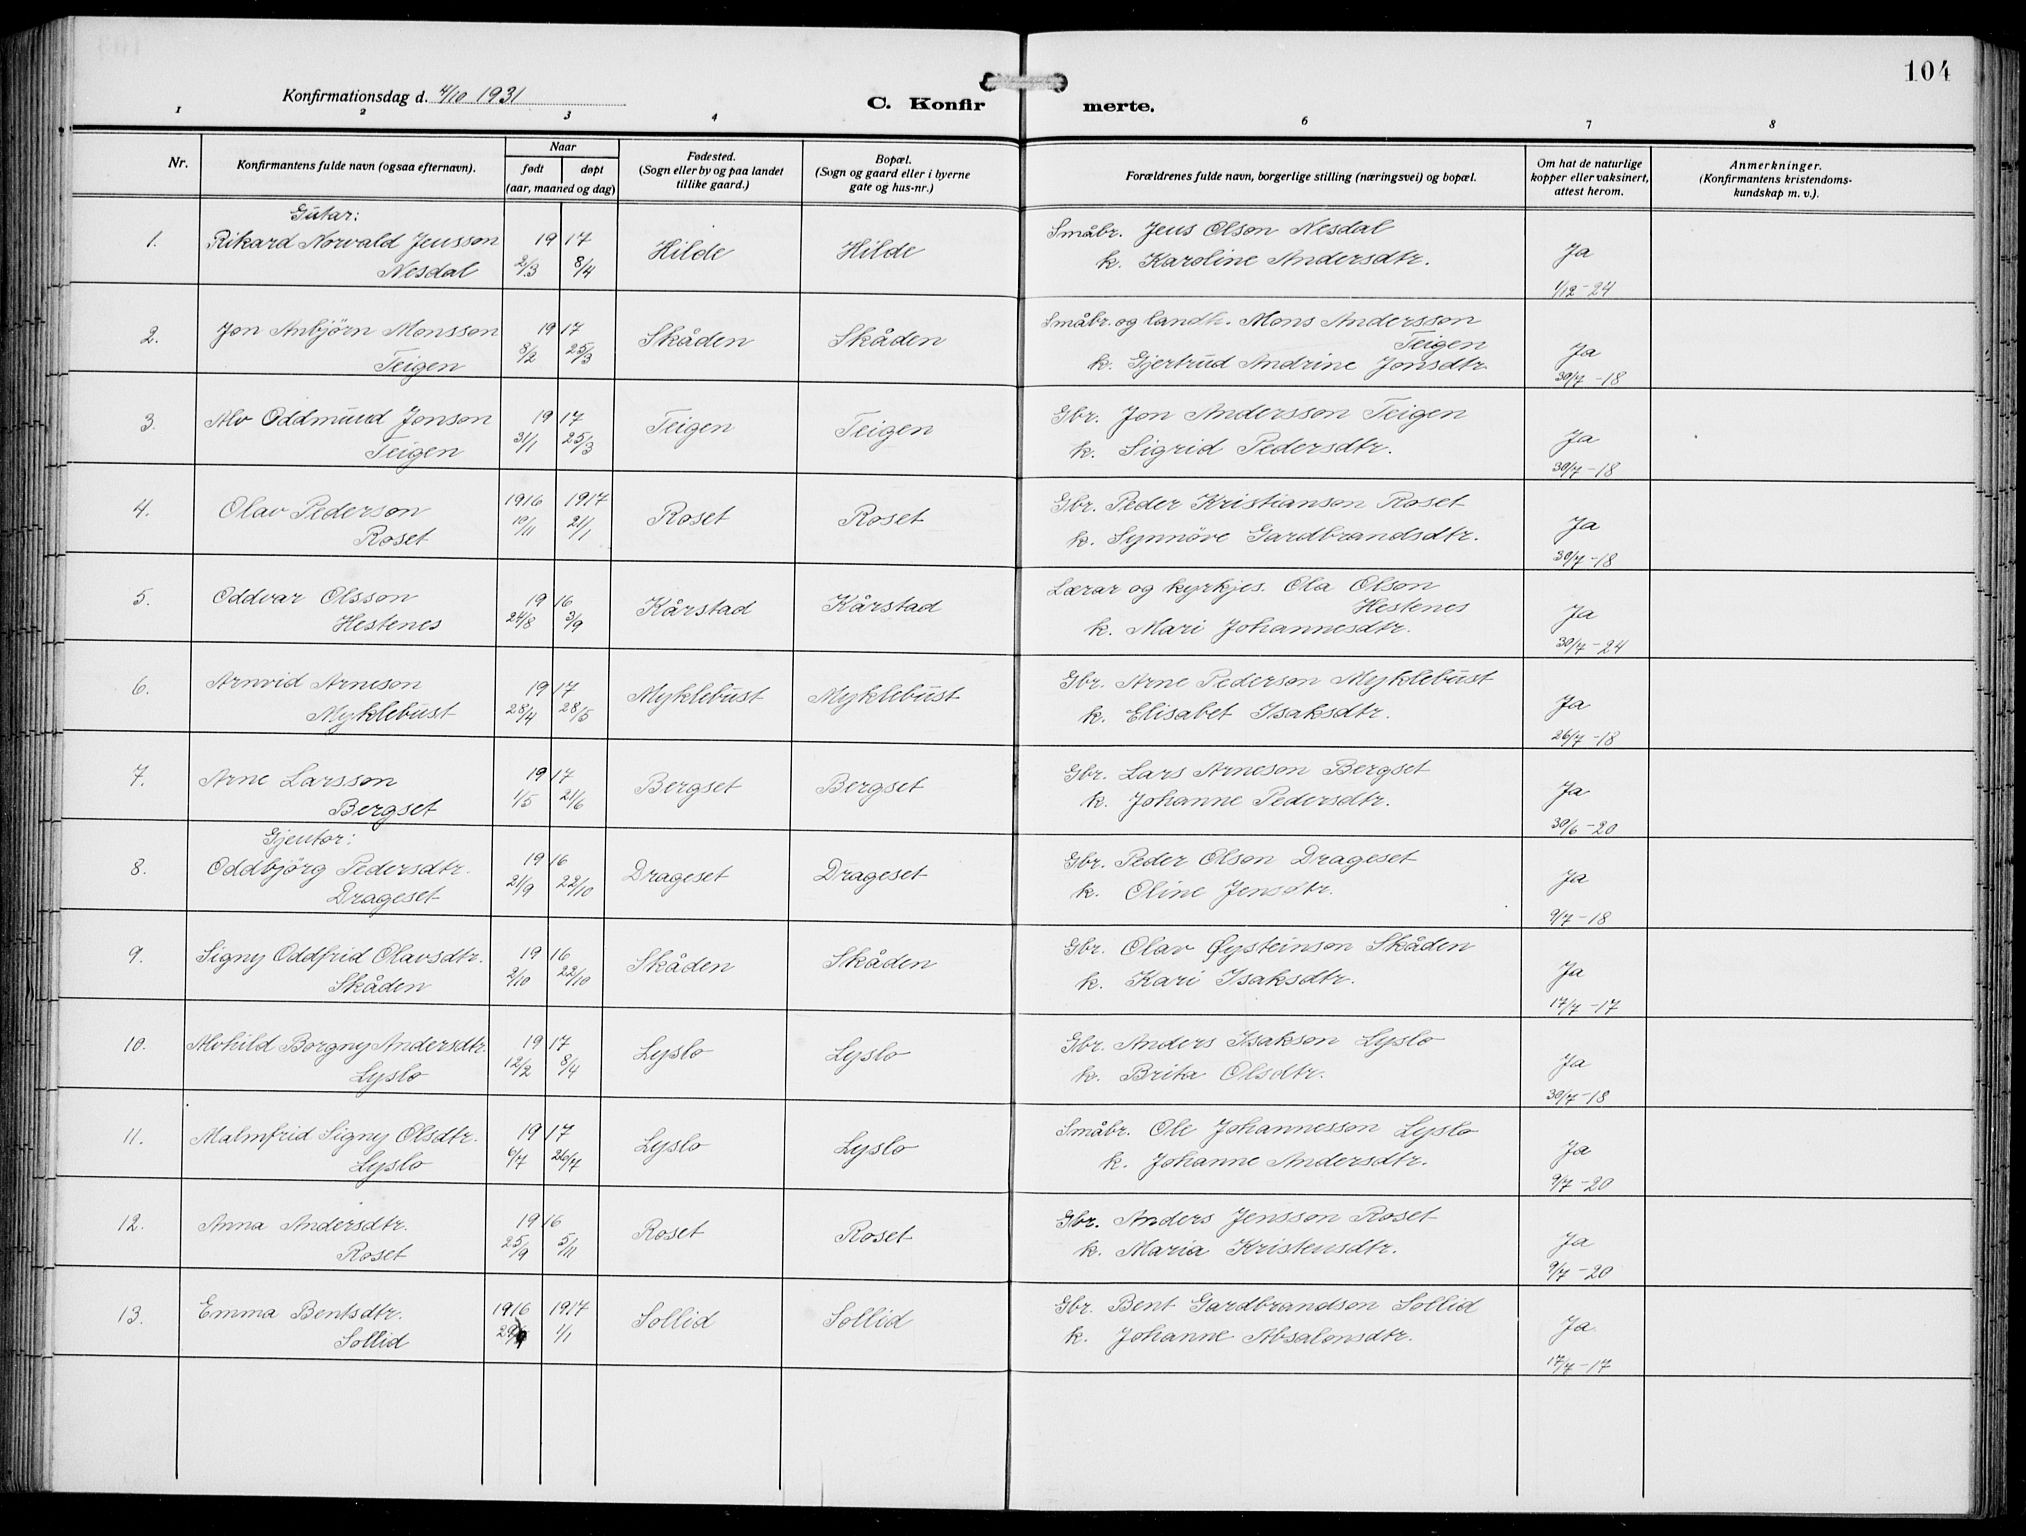 104
Konfirmationsdag d. 4/10 1931
C. Konfir merte.
1 2 3 4 6 7 8
Nr.
Konfirmantens fulde navn (ogsaa efternavn).
Naar
født døpt
(aar, maaned og dag)
Fødested.
(Sogn eller by og paa landet
tillike gaard.)
Bopæl.
(Sogn og gaard eller i byerne
gate og hus-nr.)
Forældrenes fulde navn, borgerlige stilling (næringsvei) og bopæl.
Om hat de naturlige
kopper eller vaksinert,
attest herom.
Anmerkninger.
(Konfirmantens kristendoms-
kundskap m. v.).
Gutar:
1. Rikard Norvald Jensson 19 17 Hilde Hilde Småbr. Jens Olson Nesdal Ja
Nesdal 2/3 8/4 k. Karoline Andersdtr. 1/12-24
2. Jon Anbjörn Monsson 19 17 Skåden Skåden Småbr. og landh. Mons Andersson
Teigen
Teigen 8/2 25/3 k. Gjertrud Andrine Jonsdtr. Ja
30/7-18
3. Alv Oddmund Jonson 19 17 Teigen Teigen Gbr. Jon Andersson Teigen Ja
Teigen 31/1 25/3 k. Sigrid Pedersdtr. 30/7-18
4. Olav Pederson 1916 1917 Roset Roset Gbr. Peder Kristianson Roset Ja
Roset 10/11 21/1 k. Synnöve Gardbrandsdtr. 30/7-18
5. Oddvar Olsson 19 16 Kårstad Kårstad Lærar og kyrkjes. Ola Olson
Hestenes
Hestenes 24/8 3/9 k. Mari Johannesdtr. Ja
30/7-24
6. Arnvid Arneson 19 17 Myklebust Myklebust Gbr. Arne Pederson Myklebust Ja
Myklebust 28/4 28/5 k. Elisabet Isaksdtr. 26/7-18
7. Arne Larsson 19 17 Bergset Bergset Gbr. Lars Arneson Bergset Ja
Bergset 1/5 21/6 k. Johanne Pedersdtr. 30/6-20
Gjentor:
8. Oddbjörg Pedersdtr. 19 16 Drageset Drageset Gbr. Peder Olson Drageset Ja
Drageset 21/9 22/10 k. Oline Jensdtr. 9/7-18
9. Signy Oddfrid Olavsdtr. 19 16 Skåden Skåden Gbr. Olav Øysteinson Skåden Ja
Skåden 2/10 22/10 k. Kari Isaksdtr. 17/7-17
10. Alvhild Borgny Andersdtr. 19 17 Lyslo Lyslo Gbr. Anders Isakson Lyslo Ja
Lyslo 12/2 8/4 k. Brita Olsdtr. 30/7-18
11. Malmfrid Signy Olsdtr. 19 17 Lyslo Lyslo Småbr. Ole Johannesson Lyslo Ja
Lyslo 6/7 26/7 k. Johanne Andersdtr. 9/7-20
12. Anna Andersdtr. 19 16 Roset Roset Gbr. Anders Jensson Roset Ja
Roset 25/9 5/11 k. Maria Kristensdtr. 9/7-20
13. Emma Bentsdtr. 1916 1917 Sollid Sollid Gbr. Bent Gardbrandson Sollid Ja
Sollid 1/1 k. Johanne Absalonsdtr. 17/7-17